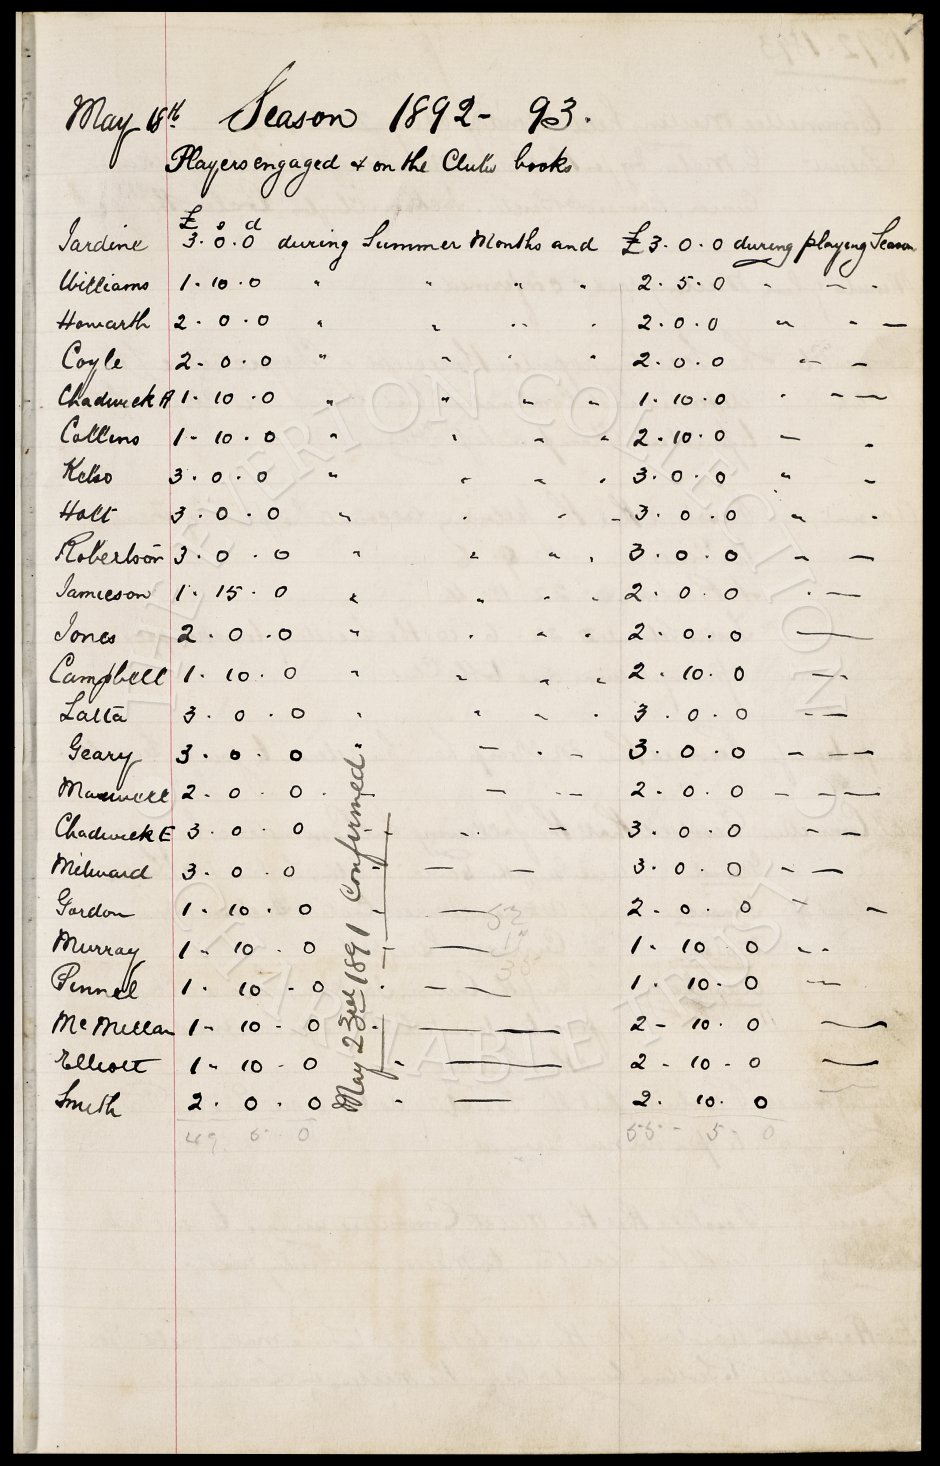 May 18th Season 1892-93.
Players engaged & on the Clubs books
£ s d
Jardine 3.0.0 during Summer Months and £3.0.0 during playing Season
Williams 1.10.0 " " " " 2.5.0 " — "
Howarth 2.0.0 " " " " 2.0.0 " - —
Coyle 2.0.0 " " " " 2.0.0 - —
Chadwick A 1.10.0 " " " " 1.10.0 " - —
Collins 1.10.0 " " " " 2.10.0 — -
Kelso 3.0.0 " " " " 3.0.0 " -
Holt 3.0.0 " " " " 3.0.0 " "
Robertson 3.0.0 " " " " 3.0.0 - —
Jamieson 1.15.0 " " " " 2.0.0 " —
Jones 2.0.0 " " " " 2.0.0 —
Campbell 1.10.0 " " " " 2.10.0 - —
Latta 3.0.0 " " " " 3.0.0 - —
Geary 3.0.0 " — " — 3.0.0 - - —
Maxwell 2.0.0 " — - — 2.0.0 - - —
Chadwick E 3.0.0 - - — 3.0.0 - —
Milward 3.0.0 " — — 3.0.0 - —
Gordon 1.10.0 - — 2.0.0 " -
Murray 1.10.0 - — 1.10.0 - -
Pinnell 1.10.0 " - — 1.10.0 - —
McMillan 1.10.0 " — — 2.10.0 —
Elliott 1.10.0 " — 2.10.0 —
Smith 2.0.0 " — 2.10.0
49. 5. 0 55-5.0
May 23rd 1891 Confirmed
EVERTON COLLECTION
CHARITABLE TRUST